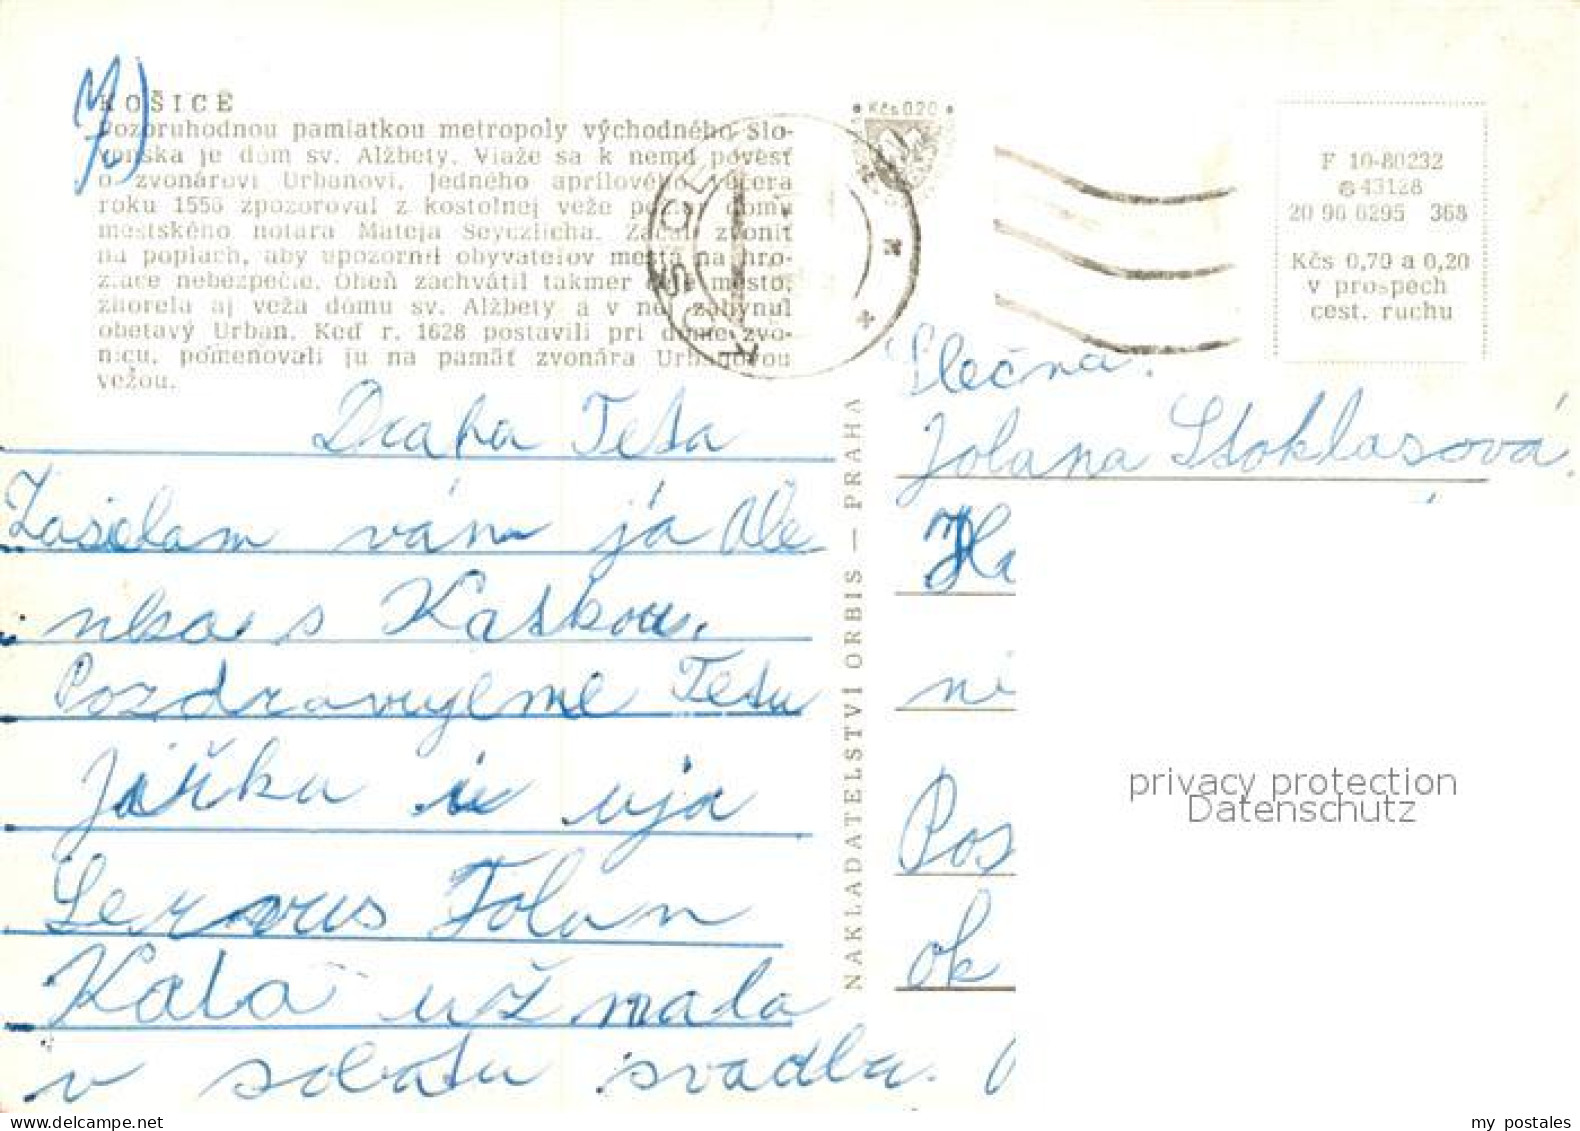 KOŠICE
Pozoruhodnou pamiatkou metropoly východného Slo-
venska je dóm sv. Alžbety. Viaže sa k nemu povesť
o zvonárovi Urbanovi. Jedného aprílového večera
roku 1556 zpozoroval z kostolnej veže požiar domu
mestského notára Mateja Seyczlicha. Začal zvoniť
na poplach, aby upozornil obyvateľov mesta na hro-
ziace nebezpečie. Oheň zachvátil takmer celé mesto,
zhorela aj veža dómu sv. Alžbety a v nej zahynul
obetavý Urban. Keď r. 1628 postavili pri dóme zvo-
nicu, pomenovali ju na pamäť zvonára Urbanovou
vežou.
Kčs 0.20
KOŠICE
F 10-80232
43128
20 96 6295 368
Kčs 0,70 a 0,20
v prospech
cest. ruchu
Draha Teta
Zasielam vám já Ale-
nka s Katkou.
Pozdravujeme Tetu
Jarka i uja
Servus Jolan
Kata už mala
v sobotu svadba.
NAKLADATELSTVI ORBIS — PRAHA
Slečna.
Jolana Stoklasová.
Ha
ni
Pos
ok
privacy protection
Datenschutz
my postales